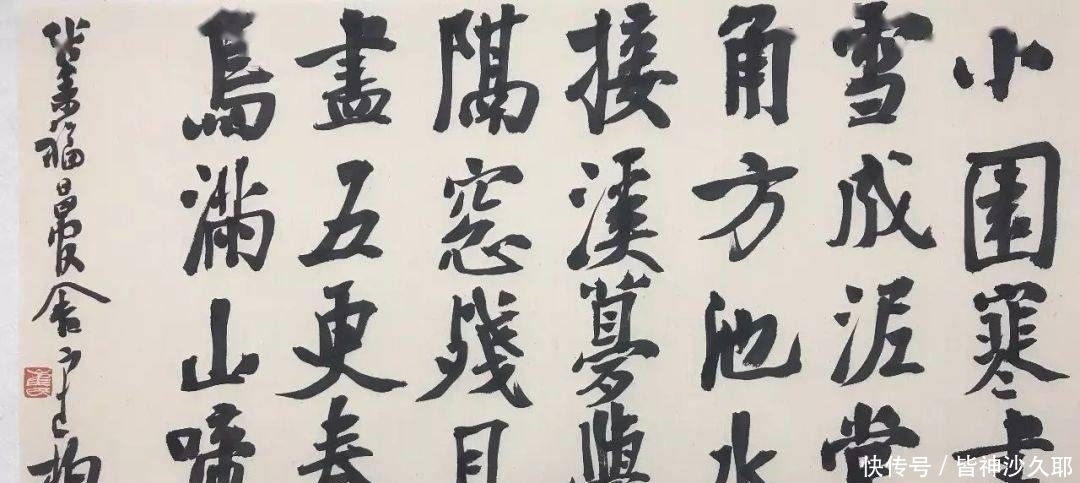 小園寒
雪成泥堂
角方池水
接溪夢覺
隔窓殘月
盡五更春
鳥滿山啼
福昌舍
快传号 / 皆神沙久耶